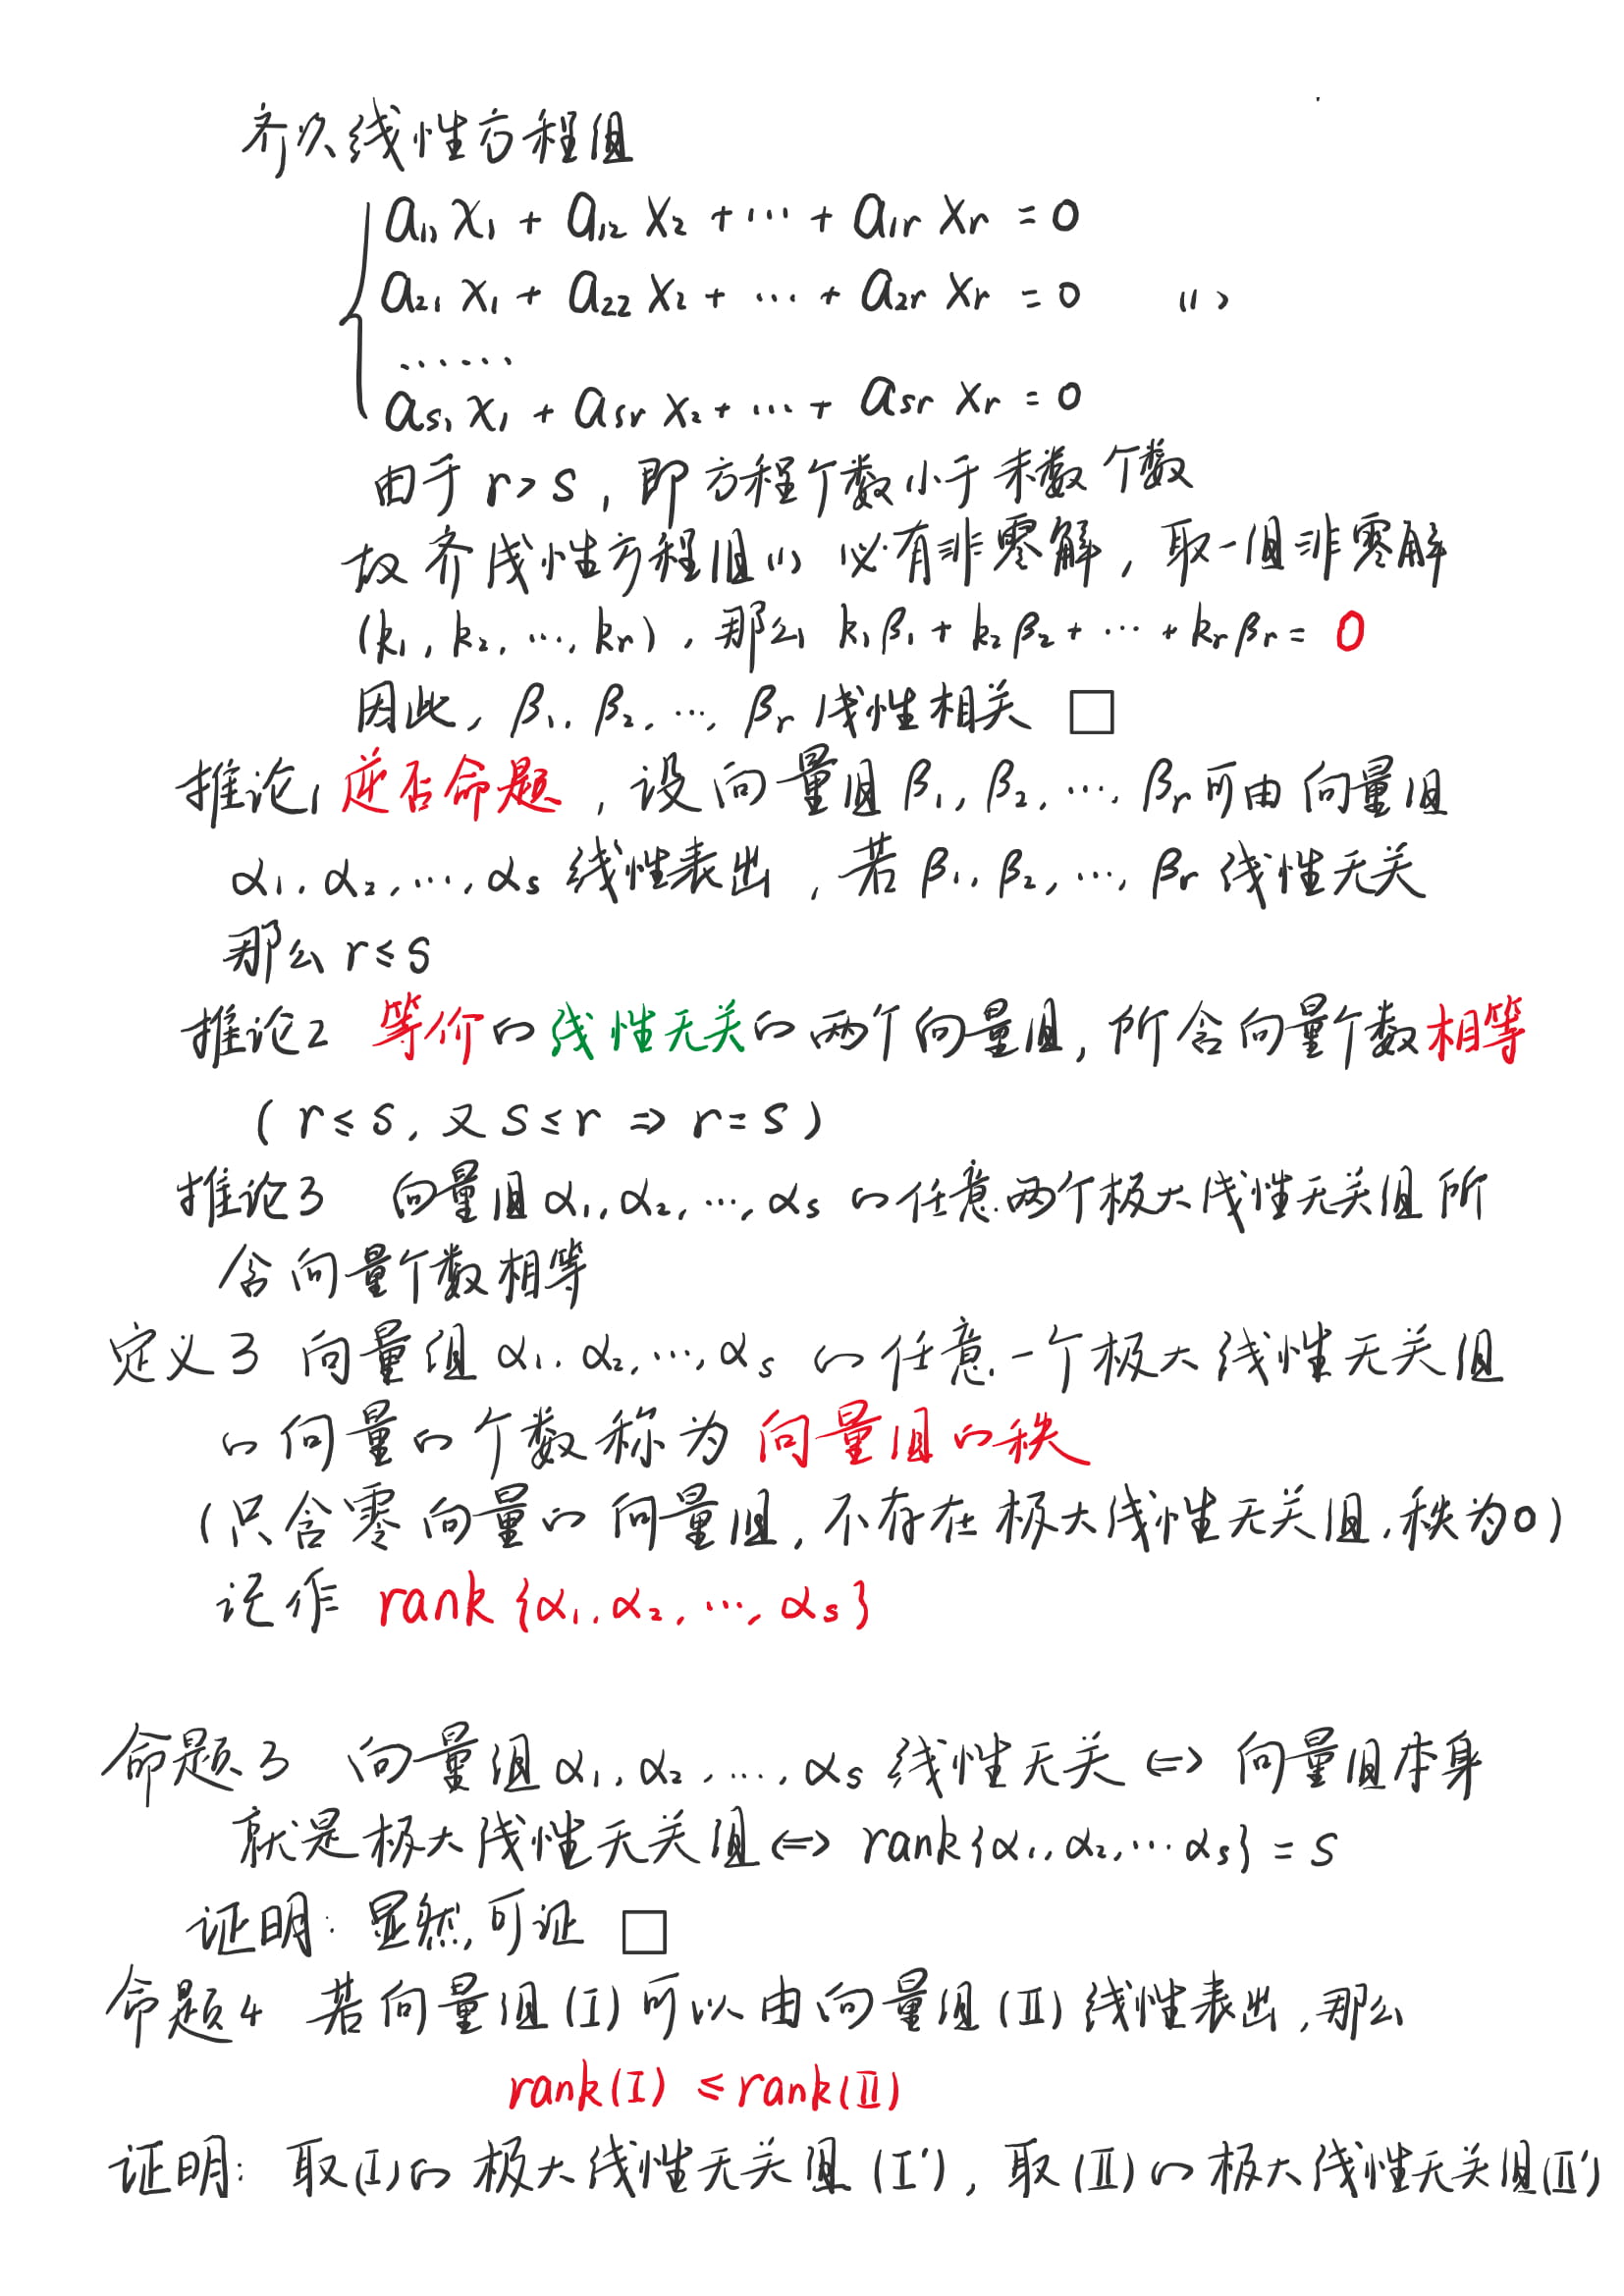 齐次线性方程组
a₁₁x₁ + a₁₂x₂ + ⋯ + a₁ᵣxᵣ = 0
a₂₁x₁ + a₂₂x₂ + ⋯ + a₂ᵣxᵣ = 0 (1)
⋯⋯
aₛ₁x₁ + aₛᵣx₂ + ⋯ + aₛᵣxᵣ = 0
由于 r>s, 即方程个数小于未数个数
故齐线性方程组(1)必有非零解, 取一组非零解
(k₁, k₂, ⋯, kᵣ), 那么 k₁β₁ + k₂β₂ + ⋯ + kᵣβᵣ = 0
因此, β₁, β₂, ⋯, βᵣ 线性相关 □
推论1 逆否命题, 设向量组 β₁, β₂, ⋯, βᵣ 可由向量组
α₁, α₂, ⋯, αₛ 线性表出, 若 β₁, β₂, ⋯, βᵣ 线性无关
那么 r≤s
推论2 等价的线性无关的两个向量组, 所含向量个数相等
(r≤s, 又 s≤r ⇒ r=s)
推论3 向量组 α₁, α₂, ⋯, αₛ 的任意两个极大线性无关组所
含向量个数相等
定义3 向量组 α₁, α₂, ⋯, αₛ 的任意一个极大线性无关组
的向量的个数称为向量组的秩
(只含零向量的向量组, 不存在极大线性无关组, 秩为0)
记作 rank{α₁, α₂, ⋯, αₛ}
命题3 向量组 α₁, α₂, ⋯, αₛ 线性无关 ⇔ 向量组本身
就是极大线性无关组 ⇔ rank{α₁, α₂, ⋯ αₛ} = s
证明: 显然, 可证 □
命题4 若向量组(I)可以由向量组(II)线性表出, 那么
rank(I) ≤ rank(II)
证明: 取(I)的极大线性无关组(I'), 取(II)的极大线性无关组(II')